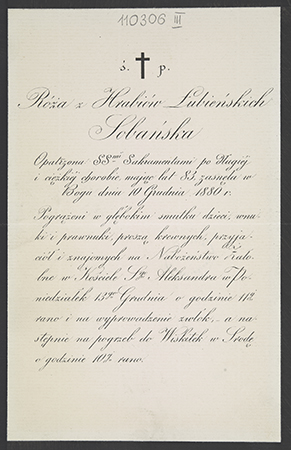 110306 III
ś. † p.
Róża z Hrabiów Łubieńskich
Sobańska
Opatrzona SS-mi Sakramentami po długiéj
i ciężkiéj chorobie, mając lat 83, zasnęła w
Bogu dnia 10 Grudnia 1880 r.
Pogrążeni w głębokim smutku dzieci, wnu-
ki i prawnuki, proszą krewnych, przyja-
ciół i znajomych na Nabożeństwo Żałob-
ne w Kościele Sgo Aleksandra w Po-
niedziałek 13go Grudnia o godzinie 11éj
rano i na wyprowadzenie zwłok, – a na-
stępnie na pogrzeb do Wiskitek w Środę
o godzinie 10éj rano.